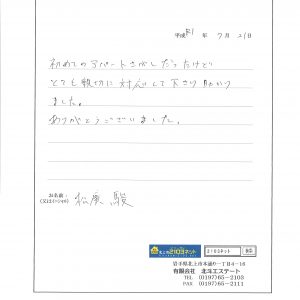 平成 R1 年 7月 21日
初めてのアパートさがしだったけど
とても親切に対応して下さり助かり
ました。
ありがとうございました。
お名前:
(又はイニシャル)
松原 駿
2103ネット
岩手県北上市本通り一丁目4-16
有限会社 北斗エステート
TEL (0197)65-2103
FAX (0197)65-2111